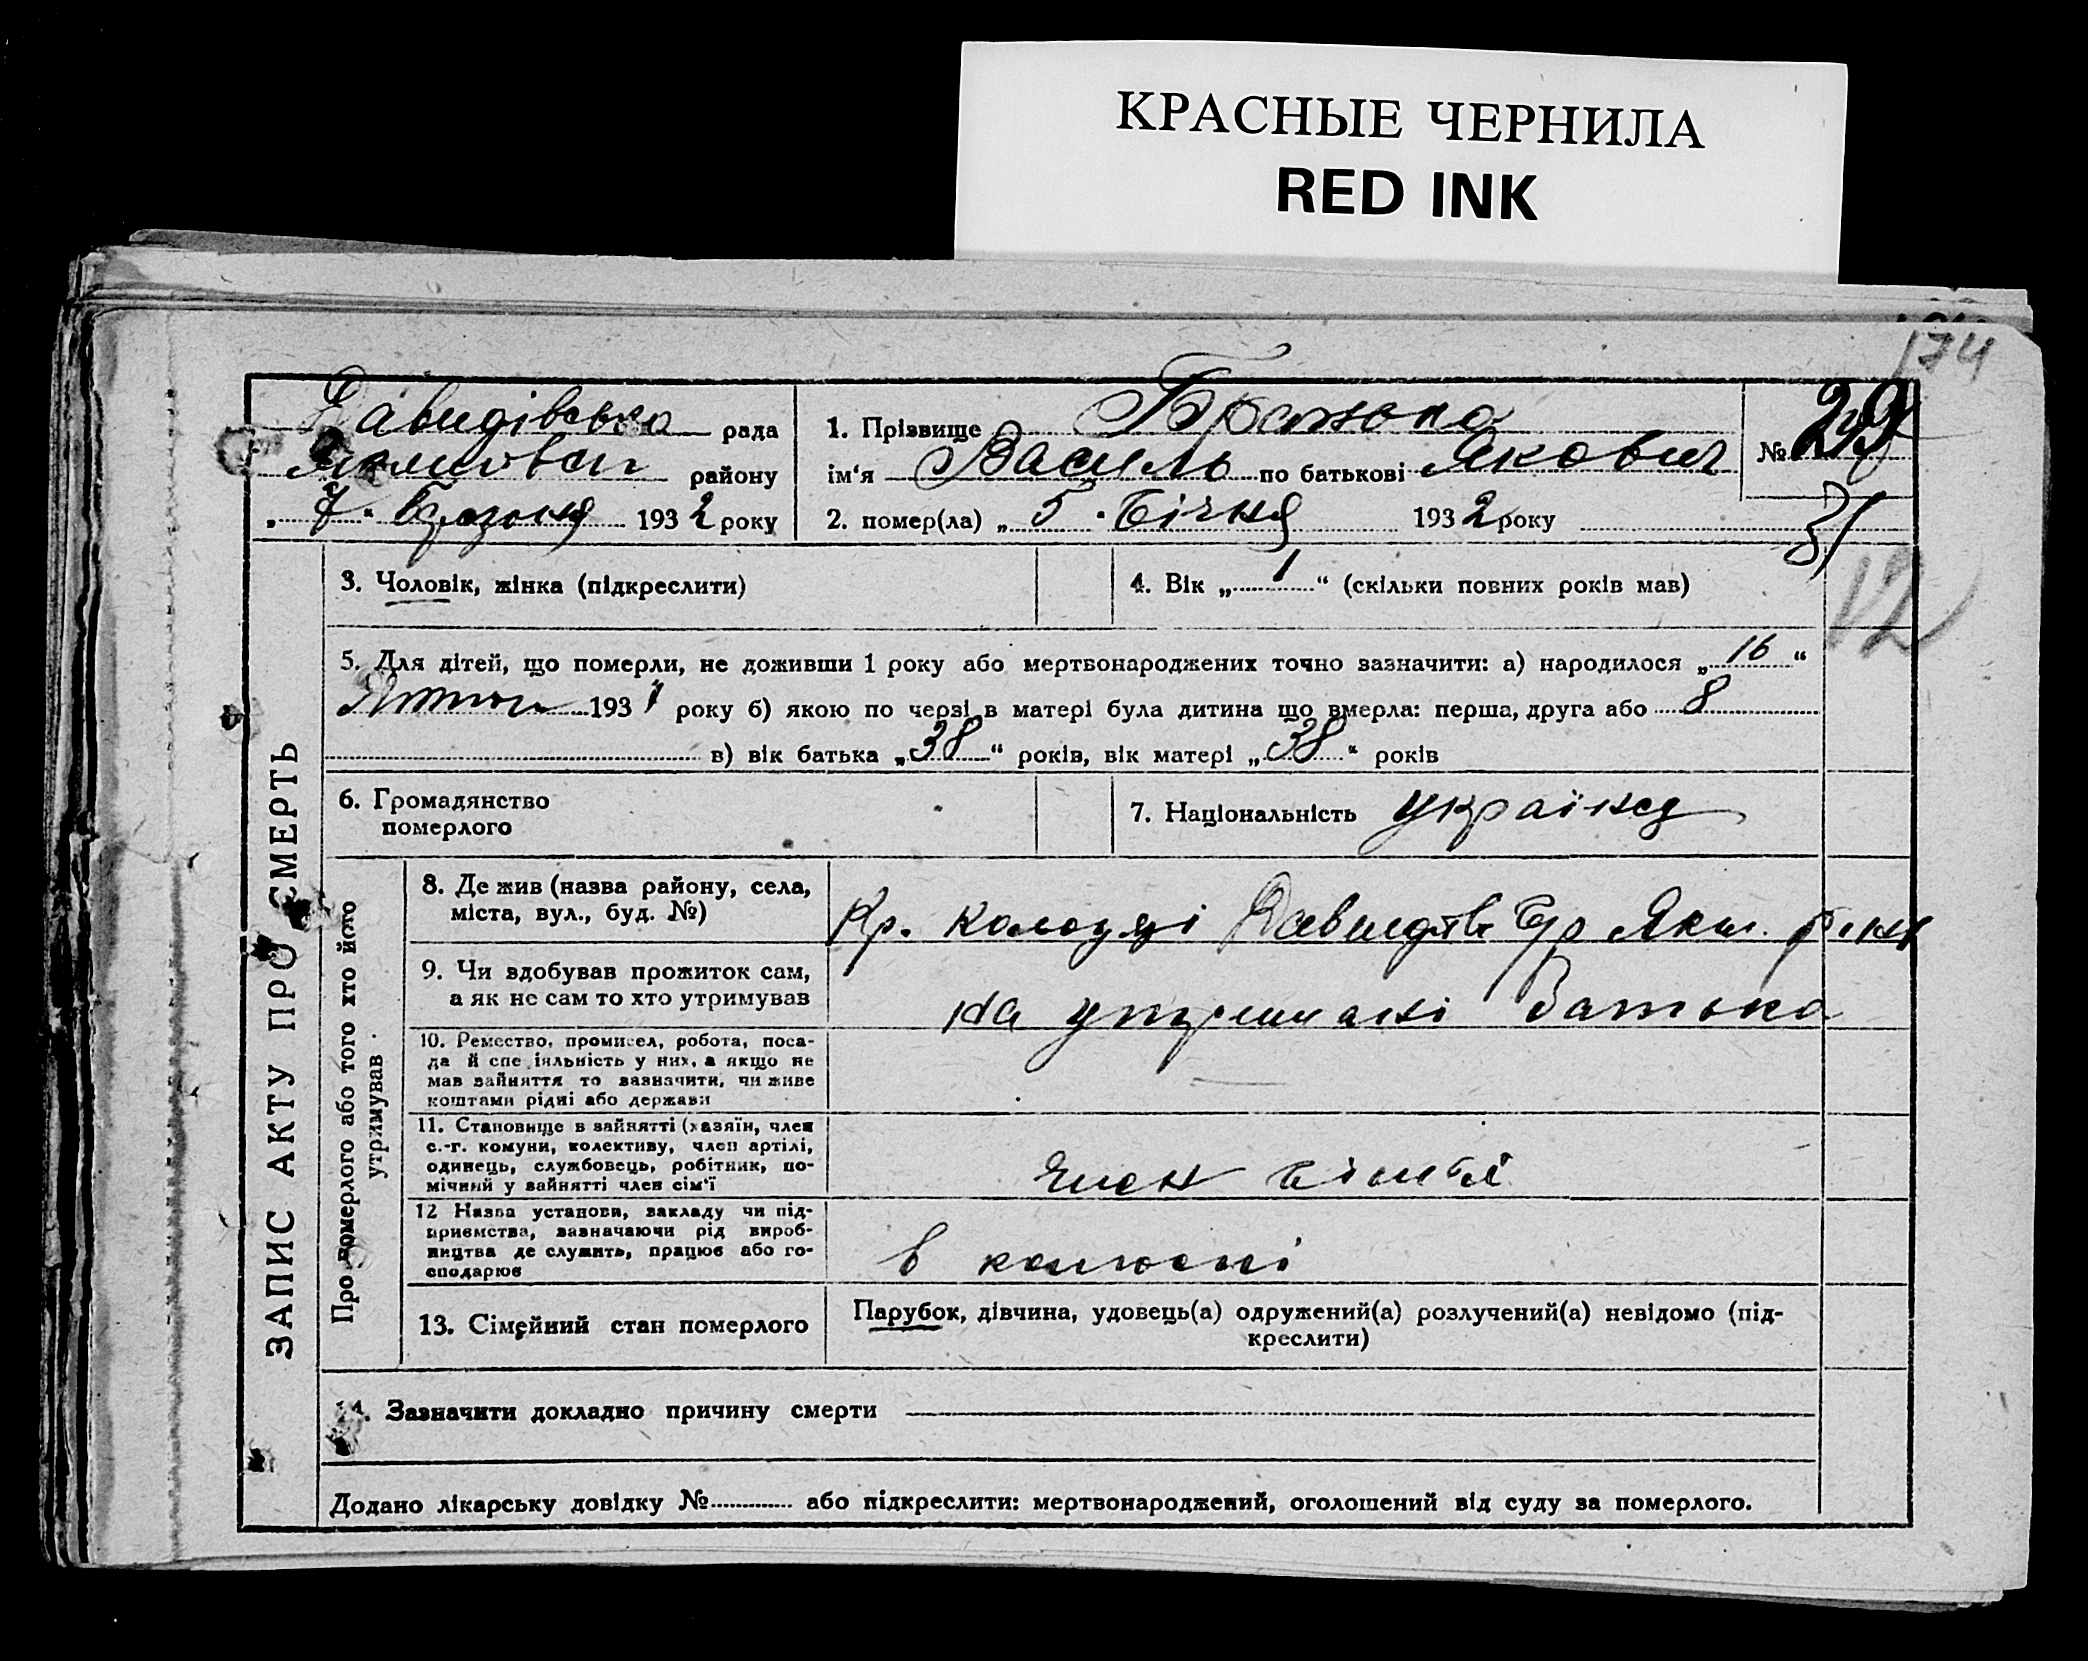 КРАСНЫЕ ЧЕРНИЛА
RED INK
174
Давидівська рада
району
„7“ Березня 1932 року
1. Прізвище Бражска
ім‘я Василь по батькові Якович
№ 29
2. помер(ла) „5“ Січня 1932 року
31
12
ЗАПИС АКТУ ПРО СМЕРТЬ
3. Чоловік, жінка (підкреслити)
4. Вік „1“ (скільки повних років мав)
5. Для дітей, що померли, не доживши 1 року або мертвонароджених точно зазначити: а) народилося „16“
1931 року б) якою по черзі в матері була дитина що вмерла: перша, друга або 8
в) вік батька „38“ років, вік матері „38“ років
6. Громадянство
померлого
7. Національність українец
Про померлого або того хто його
утримував
8. Де жив (назва району, села,
міста, вул., буд. №)
Кр. Колодязі Давидівс С/р Яким. р-на
9. Чи вдобував прожиток сам,
а як не сам то хто утримував
На утриманні Батька
10. Ремество, промисел, робота, поса-
да й спеціяльність у них, а якщо не
мав зайняття то вазначити, чи живе
коштами рідні або держави
11. Становище в зайнятті (хазяїн, член
с.-г. комуни, колективу, член артілі,
одинець, службовець, робітник, по-
мічний у зайнятті член сім‘ї
Член сімʼї
12 Назва установи, закладу чи під-
приємства, вазначаючи рід вироб-
ництва де служить, працює або го-
сподарює
в
13. Сімейний стан померлого
Парубок, дівчина, удовець(а) одружений(а) розлучений(а) невідомо (під-
креслити)
14. Зазначити докладно причину смерти
Додано лікарську довідку № або підкреслити: мертвонароджений, оголошений від суду за померлого.